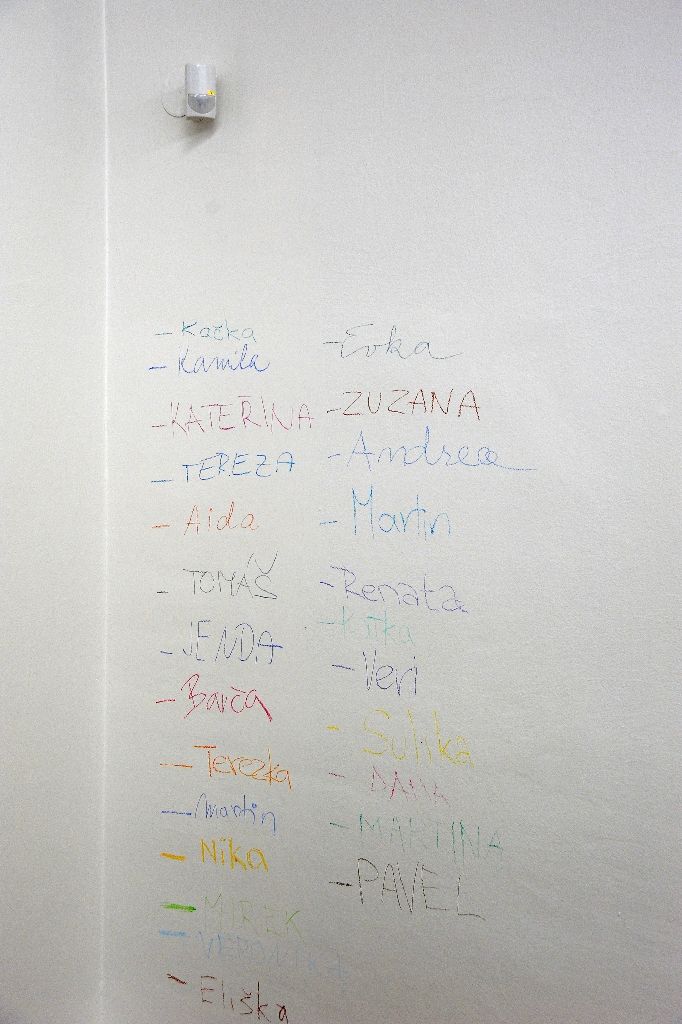 - Kačka
- Kamila
- KATEŘINA
- TEREZA
- Aida
- TOMÁŠ
- JENDA
- Barča
- Terezka
- Martin
- Nika
- MIREK
- VERONIKA
- Eliška
- Evka
- ZUZANA
- Andrea
- Martin
- Renata
- Veri
- Sulika
- MARTINA
- PAVEL